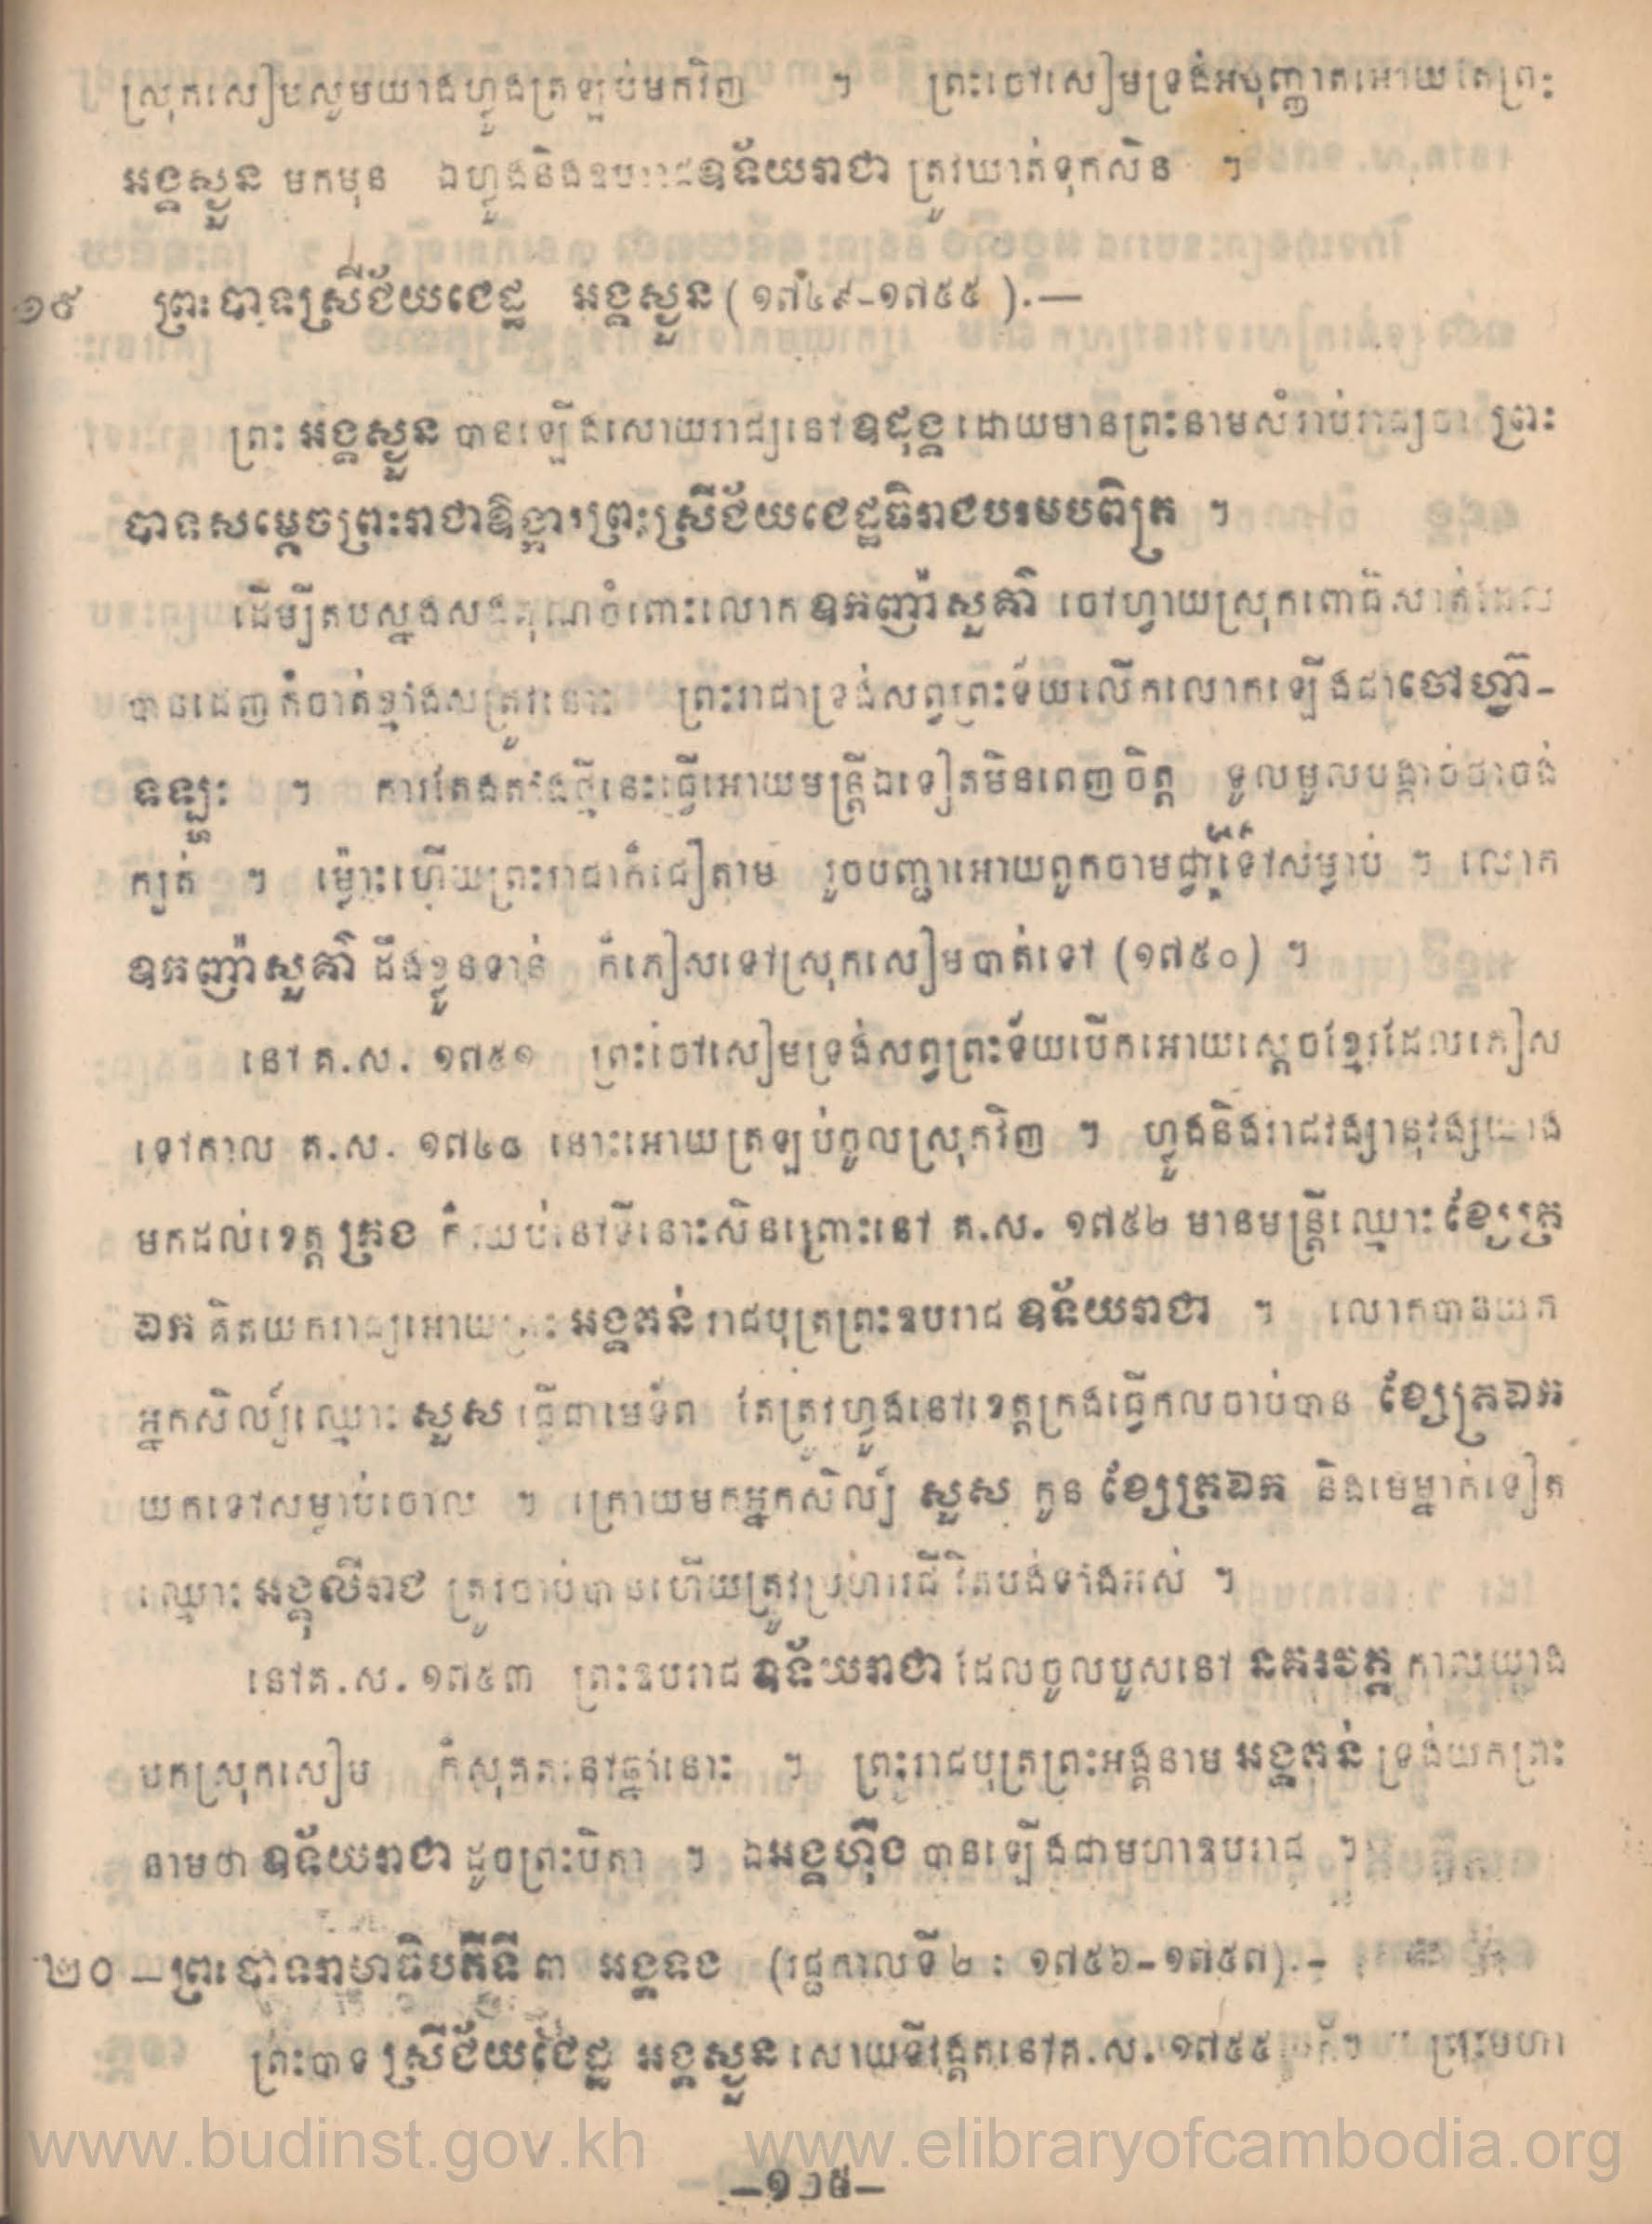 ស្រុកសៀមសូមយាងហ្លួងត្រឡប់មកវិញ ។ ព្រះចៅសៀមទ្រង់អនុញ្ញាតអោយតែព្រះ
អង្គស្ងួន មកមុន ឯហ្លួងនិងឧបរាជឧទ័យរាជា ត្រូវឃាត់ទុកសិន ។
១៩ ព្រះបាទស្រីជ័យជេដ្ឋ អង្គស្ងួន (១៧៤៩-១៧៥៥).—
ព្រះ អង្គស្ងួន បានឡើងសោយរាជ្យនៅ ឧដុង្គ ដោយមានព្រះនាមសំរាប់រាជ្យថា ព្រះ
បាទសម្តេចព្រះរាជាឱង្ការព្រះស្រីជ័យជេដ្ឋធិរាជបរមបពិត្រ ។
ដើម្បីតបស្នងសងគុណចំពោះលោក ឧកញ៉ាសួគ៌ា ចៅហ្វាយស្រុកពោធិសាត់ដែល
បានដេញកំចាត់ខ្មាំងសត្រូវនោះ ព្រះរាជាទ្រង់សព្វព្រះទ័យលើកលោកឡើងជាចៅហ្វា-
ទឡ្ហះ ។ ការតែងតាំងថ្មីនេះធ្វើអោយមន្ត្រីឯទៀតមិនពេញចិត្ត ទូលមួលបង្កាច់ថាចង់
ក្បត់ ។ ម្ល៉ោះហើយព្រះរាជាក៏ជឿតាម រួចបញ្ជាអោយពួកចាមជ្វាទៅសម្លាប់ ។ លោក
ឧកញ៉ាសួគ៌ា ដឹងខ្លួនទាន់ ក៏ភៀសទៅស្រុកសៀមបាត់ទៅ (១៧៥០) ។
នៅ គ.ស. ១៧៥១ ព្រះចៅសៀមទ្រង់សព្វព្រះទ័យបើកអោយស្តេចខ្មែរដែលភៀស
ទៅកាល គ.ស. ១៧៤៨ នោះអោយត្រឡប់ចូលស្រុកវិញ ។ ហ្លួងនិងរាជវង្សានុវង្សយាង
មកដល់ខេត្ត ក្រង ក៏ឈប់នៅទីនោះសិនព្រោះនៅ គ.ស. ១៧៥២ មានមន្ត្រីឈ្មោះ ខ្សែត្រ
ឯក គិតយករាជ្យអោយព្រះ អង្គតន់ រាជបុត្រព្រះឧបរាជ ឧទ័យរាជា ។ លោកបានយក
អ្នកសិល្ប៍ឈ្មោះ សួស ធ្វើជាមេទ័ព តែត្រូវហ្លួងនៅខេត្តក្រងធ្វើកលចាប់បាន ខ្សែត្រឯក
យកទៅសម្លាប់ចោល ។ ក្រោយមកអ្នកសិល្ប៍ សួស កូន ខ្សែត្រឯក និងមេម្នាក់ទៀត
ឈ្មោះ អង្គុលីរាជ ត្រូវចាប់បានហើយត្រូវប្រហារជីវិតបង់ទាំងអស់ ។
នៅគ.ស. ១៧៥៣ ព្រះឧបរាជ ឧទ័យរាជា ដែលចូលបួសនៅ នគរវត្ត កាលយាង
មកស្រុកសៀម ក៏សុគតនៅឆ្នាំនោះ ។ ព្រះរាជបុត្រព្រះអង្គនាម អង្គតន់ ទ្រង់យកព្រះ
នាមថា ឧទ័យរាជា ដូចព្រះបិតា ។ ឯអង្គហ៊ីង បានឡើងជាមហាឧបរាជ ។
២០ – ព្រះបាទរាមាធិបតីទី ៣ អង្គទង (រជ្ជកាលទី ២ : ១៧៥៦-១៧៥៧).-
ព្រះបាទ ស្រីជ័យជេដ្ឋ អង្គស្ងួន សោយទីវង្គតនៅគ.ស. ១៧៥៥ ព្រះមហា
www.budinst.gov.kh www.elibraryofcambodia.org